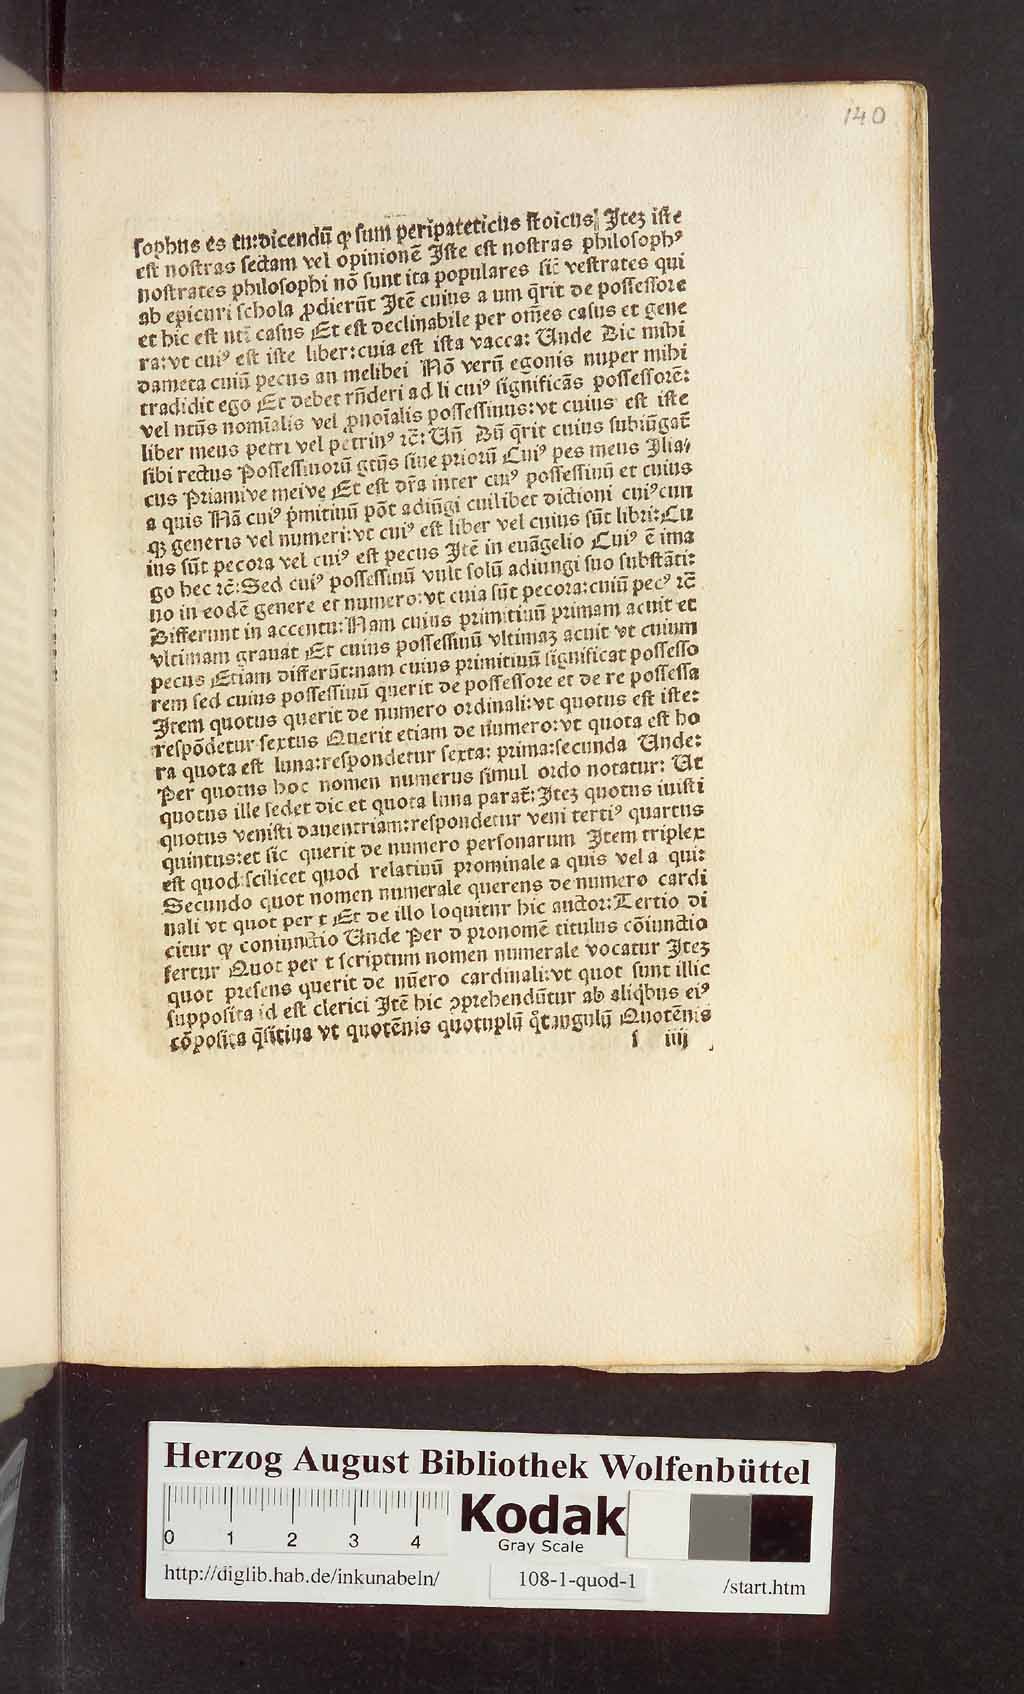 140
sophus es tu:dicendū ꝙ sum peripateticus stoicus Itez iste
est nostras sectam vel opinionē Iste est nostras philosophꝰ
nostrates philosophi nō sunt ita populares sic̄ vestrates qui
ab epicuri schola ꝓdierūt Itē cuius a um q̄rit de possessore
et hic est nti casus Et est declinabile per om̄es casus et gene
ra:vt cuiꝰ est iste liber:cuia est ista vacca: Unde Dic mihi
dameta cuiū pecus an melibei Nō verū egonis nuper mihi
tradidit ego Et debet rn̄deri ad li cuiꝰ significās possessorē:
vel ntūs nomīalis vel ꝓnoīalis possessiuus:vt cuius est iste
liber meus petri vel petrinꝰ rē: Un̄ Dū q̄rit cuius subiūgat̄
sibi rectus Possessiuorū gtūs siue priorū Cuiꝰ pes meus Ilia/
cus Priamive meive Et est dr̄a inter cuiꝰ possessiuū et cuius
a quis Nā cuiꝰ pͥmitiuū pōt adiūgi cuilibet dictioni cuiꝰcun
qꝫ generis vel numeri:vt cuiꝰ est liber vel cuius sūt libri:Cu
ius sūt pecora vel cuiꝰ est pecus Itē in euāgelio Cuiꝰ ē ima
go hec rē:Sed cuiꝰ possessiuū vult solū adiungi suo substāti:
no in eodē genere et numero:vt cuia sūt pecora:cuiū pecꝰ rē
Differunt in accentu:Nam cuius primitiuū primam acuit et
vltimam grauat Et cuius possessiuū vltimaꝫ acuit vt cuium
pecus Etiam differūt:nam cuius primitiuū significat possesso
rem sed cuius possessiuū querit de possessore et de re possessa
Item quotus querit de numero ordinali:vt quotus est iste:
respōdetur sextus Querit etiam de numero:vt quota est ho
ra quota est luna:respondetur sexta: prima:secunda Unde:
Per quotus hoc nomen numerus simul ordo notatur: Ut
quotus ille sedet dic et quota luna parat̄:Iteꝫ quotus iuisti
quotus venisti dauentriam:respondetur veni tertiꝰ quartus
quintus:et sic querit de numero personarum Item triplex
est quod:scilicet quod relatiuū prominale a quis vel a qui:
Secundo quot nomen numerale querens de numero cardi
nali vt quot per t Et de illo loquitur hic auctor:Tertio di
citur ꝙ coniunctio Unde Per d pronomē titulus cōiunctio
fertur Quot per t scriptum nomen numerale vocatur Iteꝫ
quot presens querit de nūero cardinali:vt quot sunt illic
supposita id est clerici Itē hic ꝯprehendūtur ab aliqͥbus eiꝰ
cōposita q̄sitiua vt quotēnis quotuplū qͦtangulū Quotēnis
s iiij
Herzog August Bibliothek Wolfenbüttel
0 1 2 3 4
Kodak
Gray Scale
http://diglib.hab.de/inkunabeln/ 108-1-quod-1 /start.htm